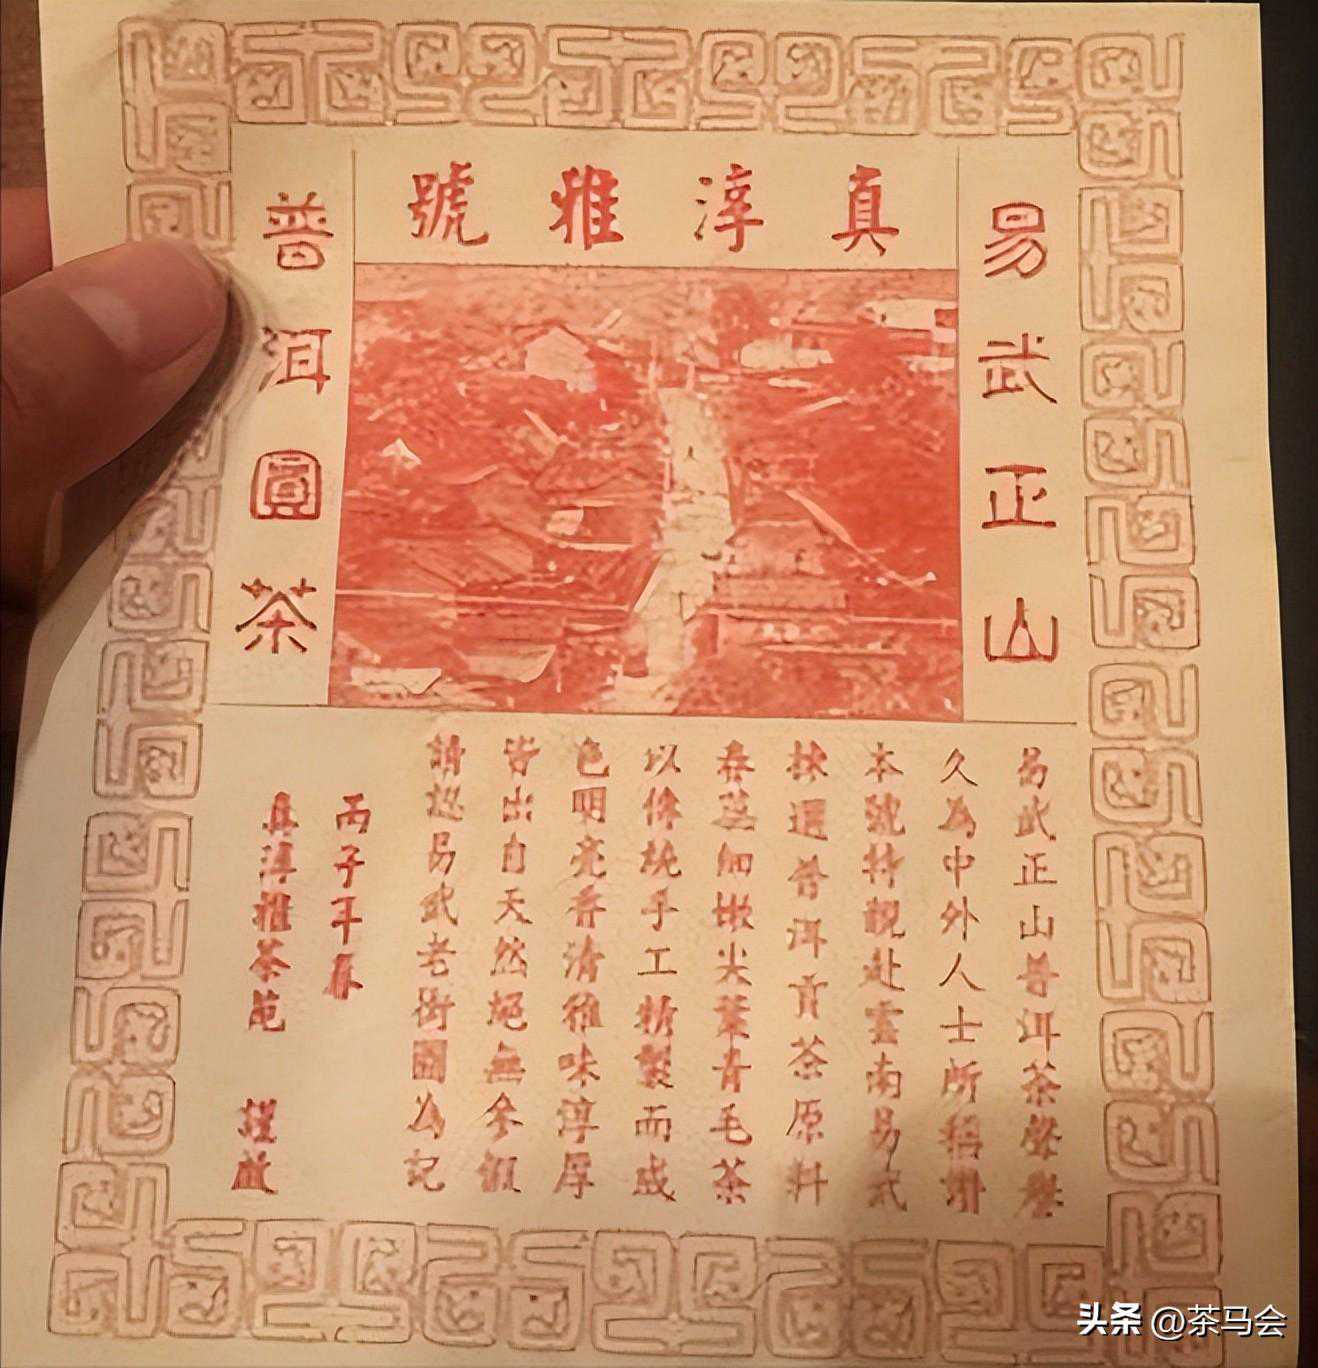 真淳雅號
易武正山
普洱圓茶
易武正山普洱茶聲譽
久為中外人士所稱讚
本號特親赴雲南易武
揀選普洱貢茶原料
春蕊細嫩尖葉青毛茶
以傳統手工精製而成
色明亮香清雅味淳厚
皆出自天然絕無參假
請認易武老街圖為記
丙子年春
真淳雅茶苑 謹啟
头条 @茶马会